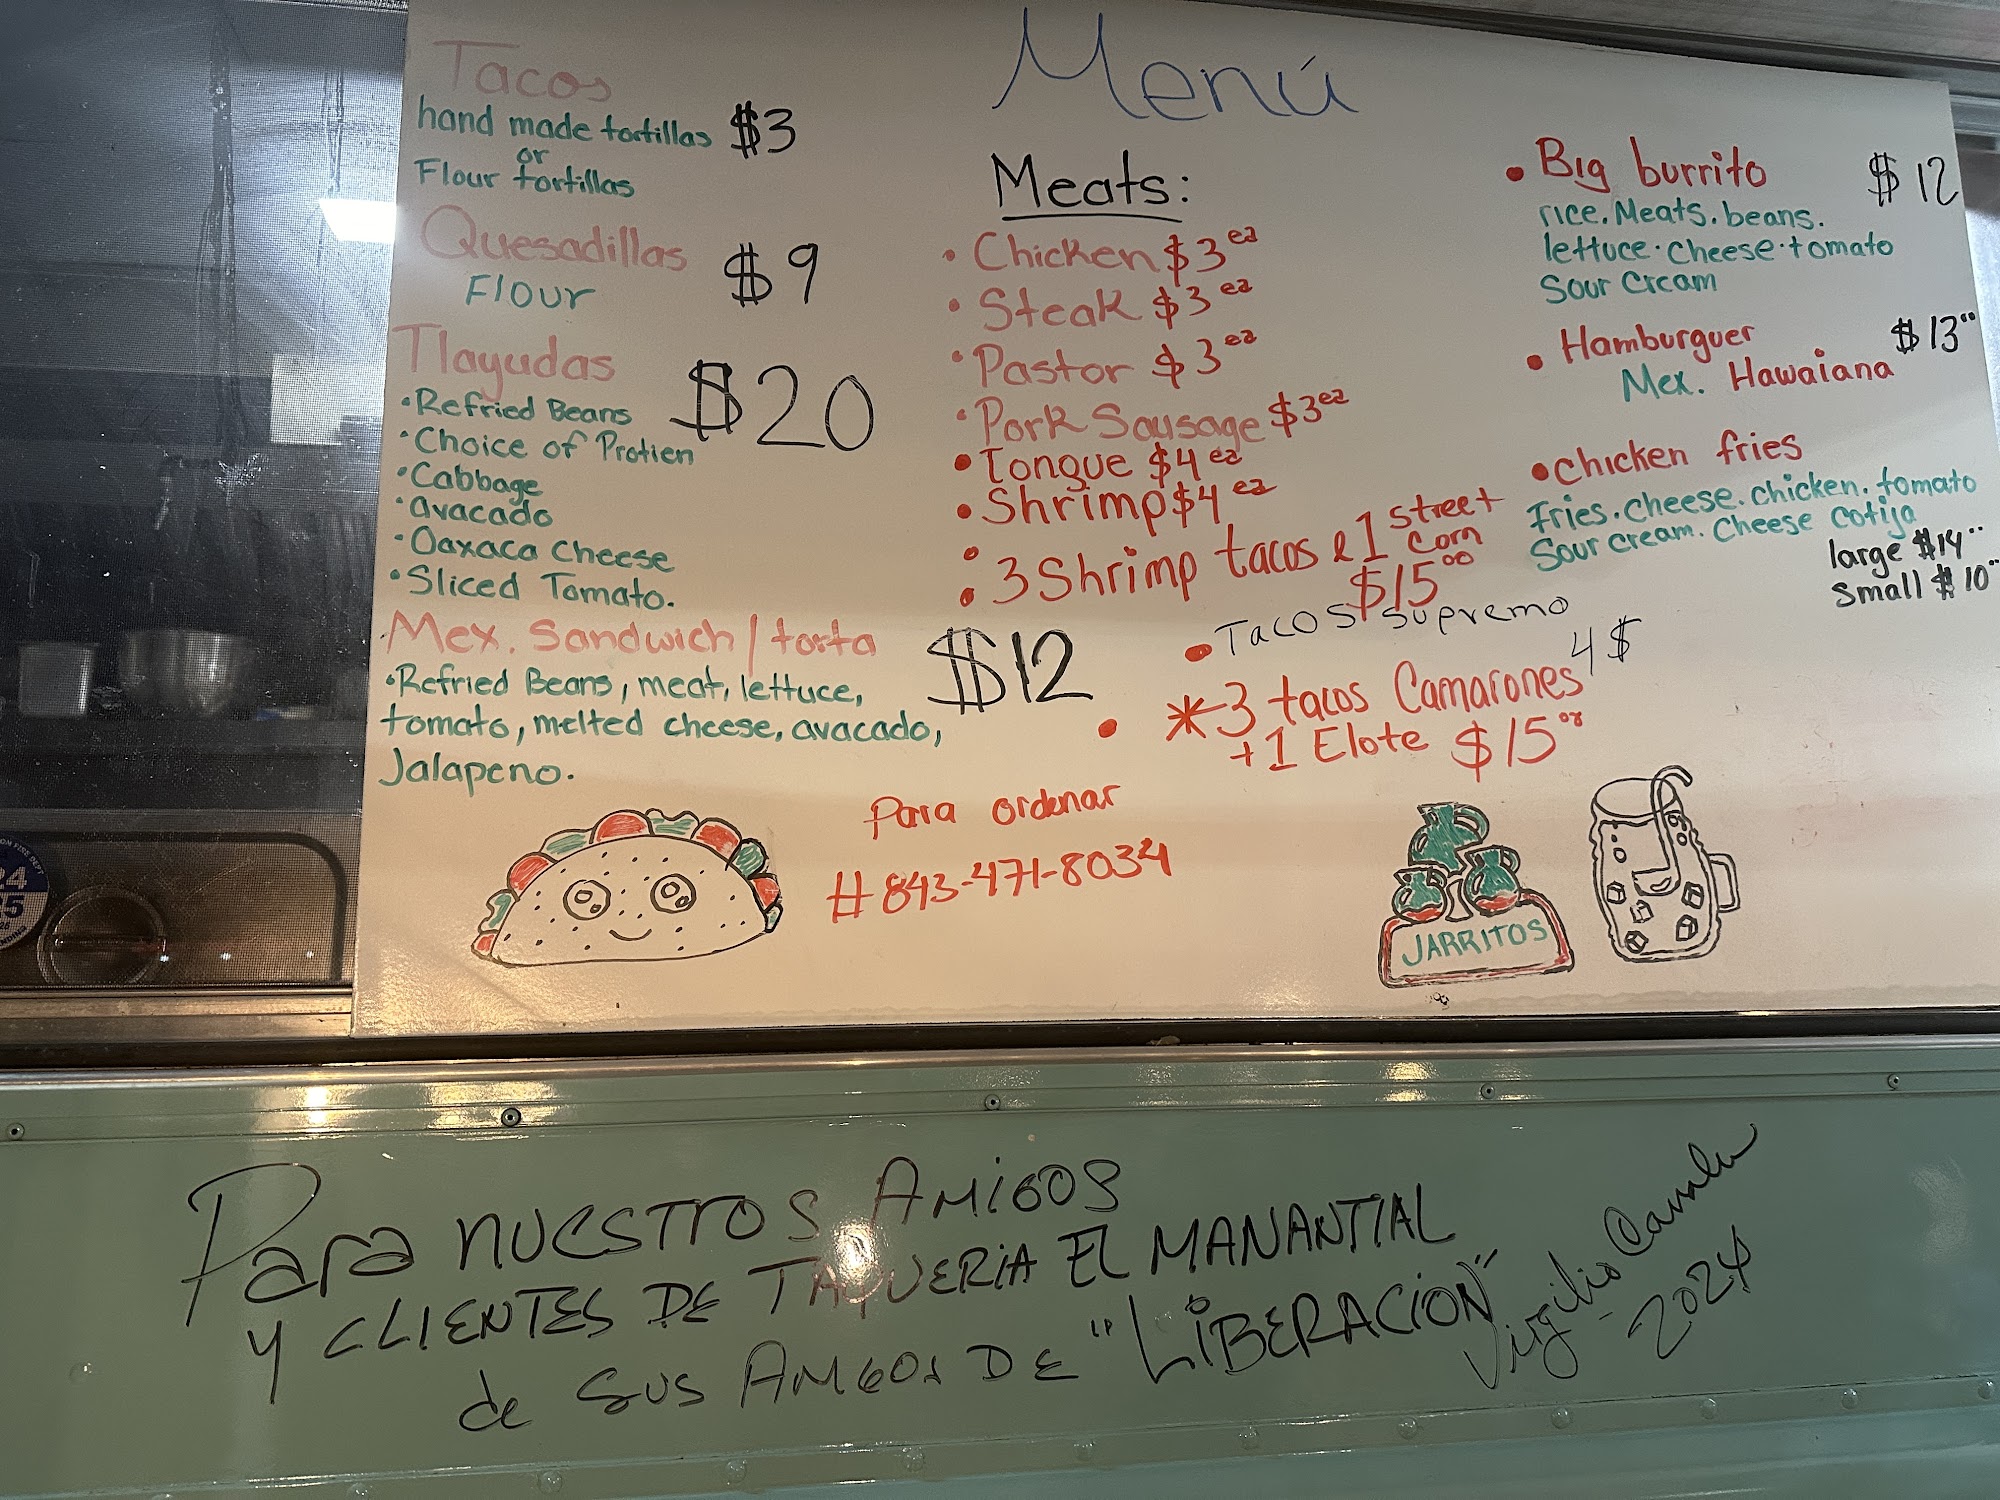 Menú
Tacos
hand made tortillas $3
or
Flour tortillas
Quesadillas $9
Flour
Tlayudas $20
•Refried Beans
•Choice of Protien
•Cabbage
•avacado
•Oaxaca cheese
•Sliced Tomato.
Mex. Sandwich / torta $12
•Refried Beans, meat, lettuce,
tomato, melted cheese, avacado,
Jalapeno.
Meats:
• Chicken $3 ea
• Steak $3 ea
• Pastor $3 ea
• Pork Sausage $3 ea
• Tongue $4 ea
• Shrimp $4 ea
• 3 Shrimp tacos & 1 street corn
$15.00
• Tacos supremo 4$
*3 tacos Camarones
+1 Elote $15
• Big burrito $12
rice. Meats. beans.
lettuce. cheese. tomato
Sour Cream
• Hamburguer $13
Mex. Hawaiana
• chicken fries
Fries. cheese. chicken. tomato
Sour cream. Cheese cotija
large $14
Small $10
Para ordenar
# 843-471-8034
JARRITOS
Para nuestros Amigos
y clientes de Taqueria El Manantial
de sus Amigos de "Liberacion"
Virgilio
2024